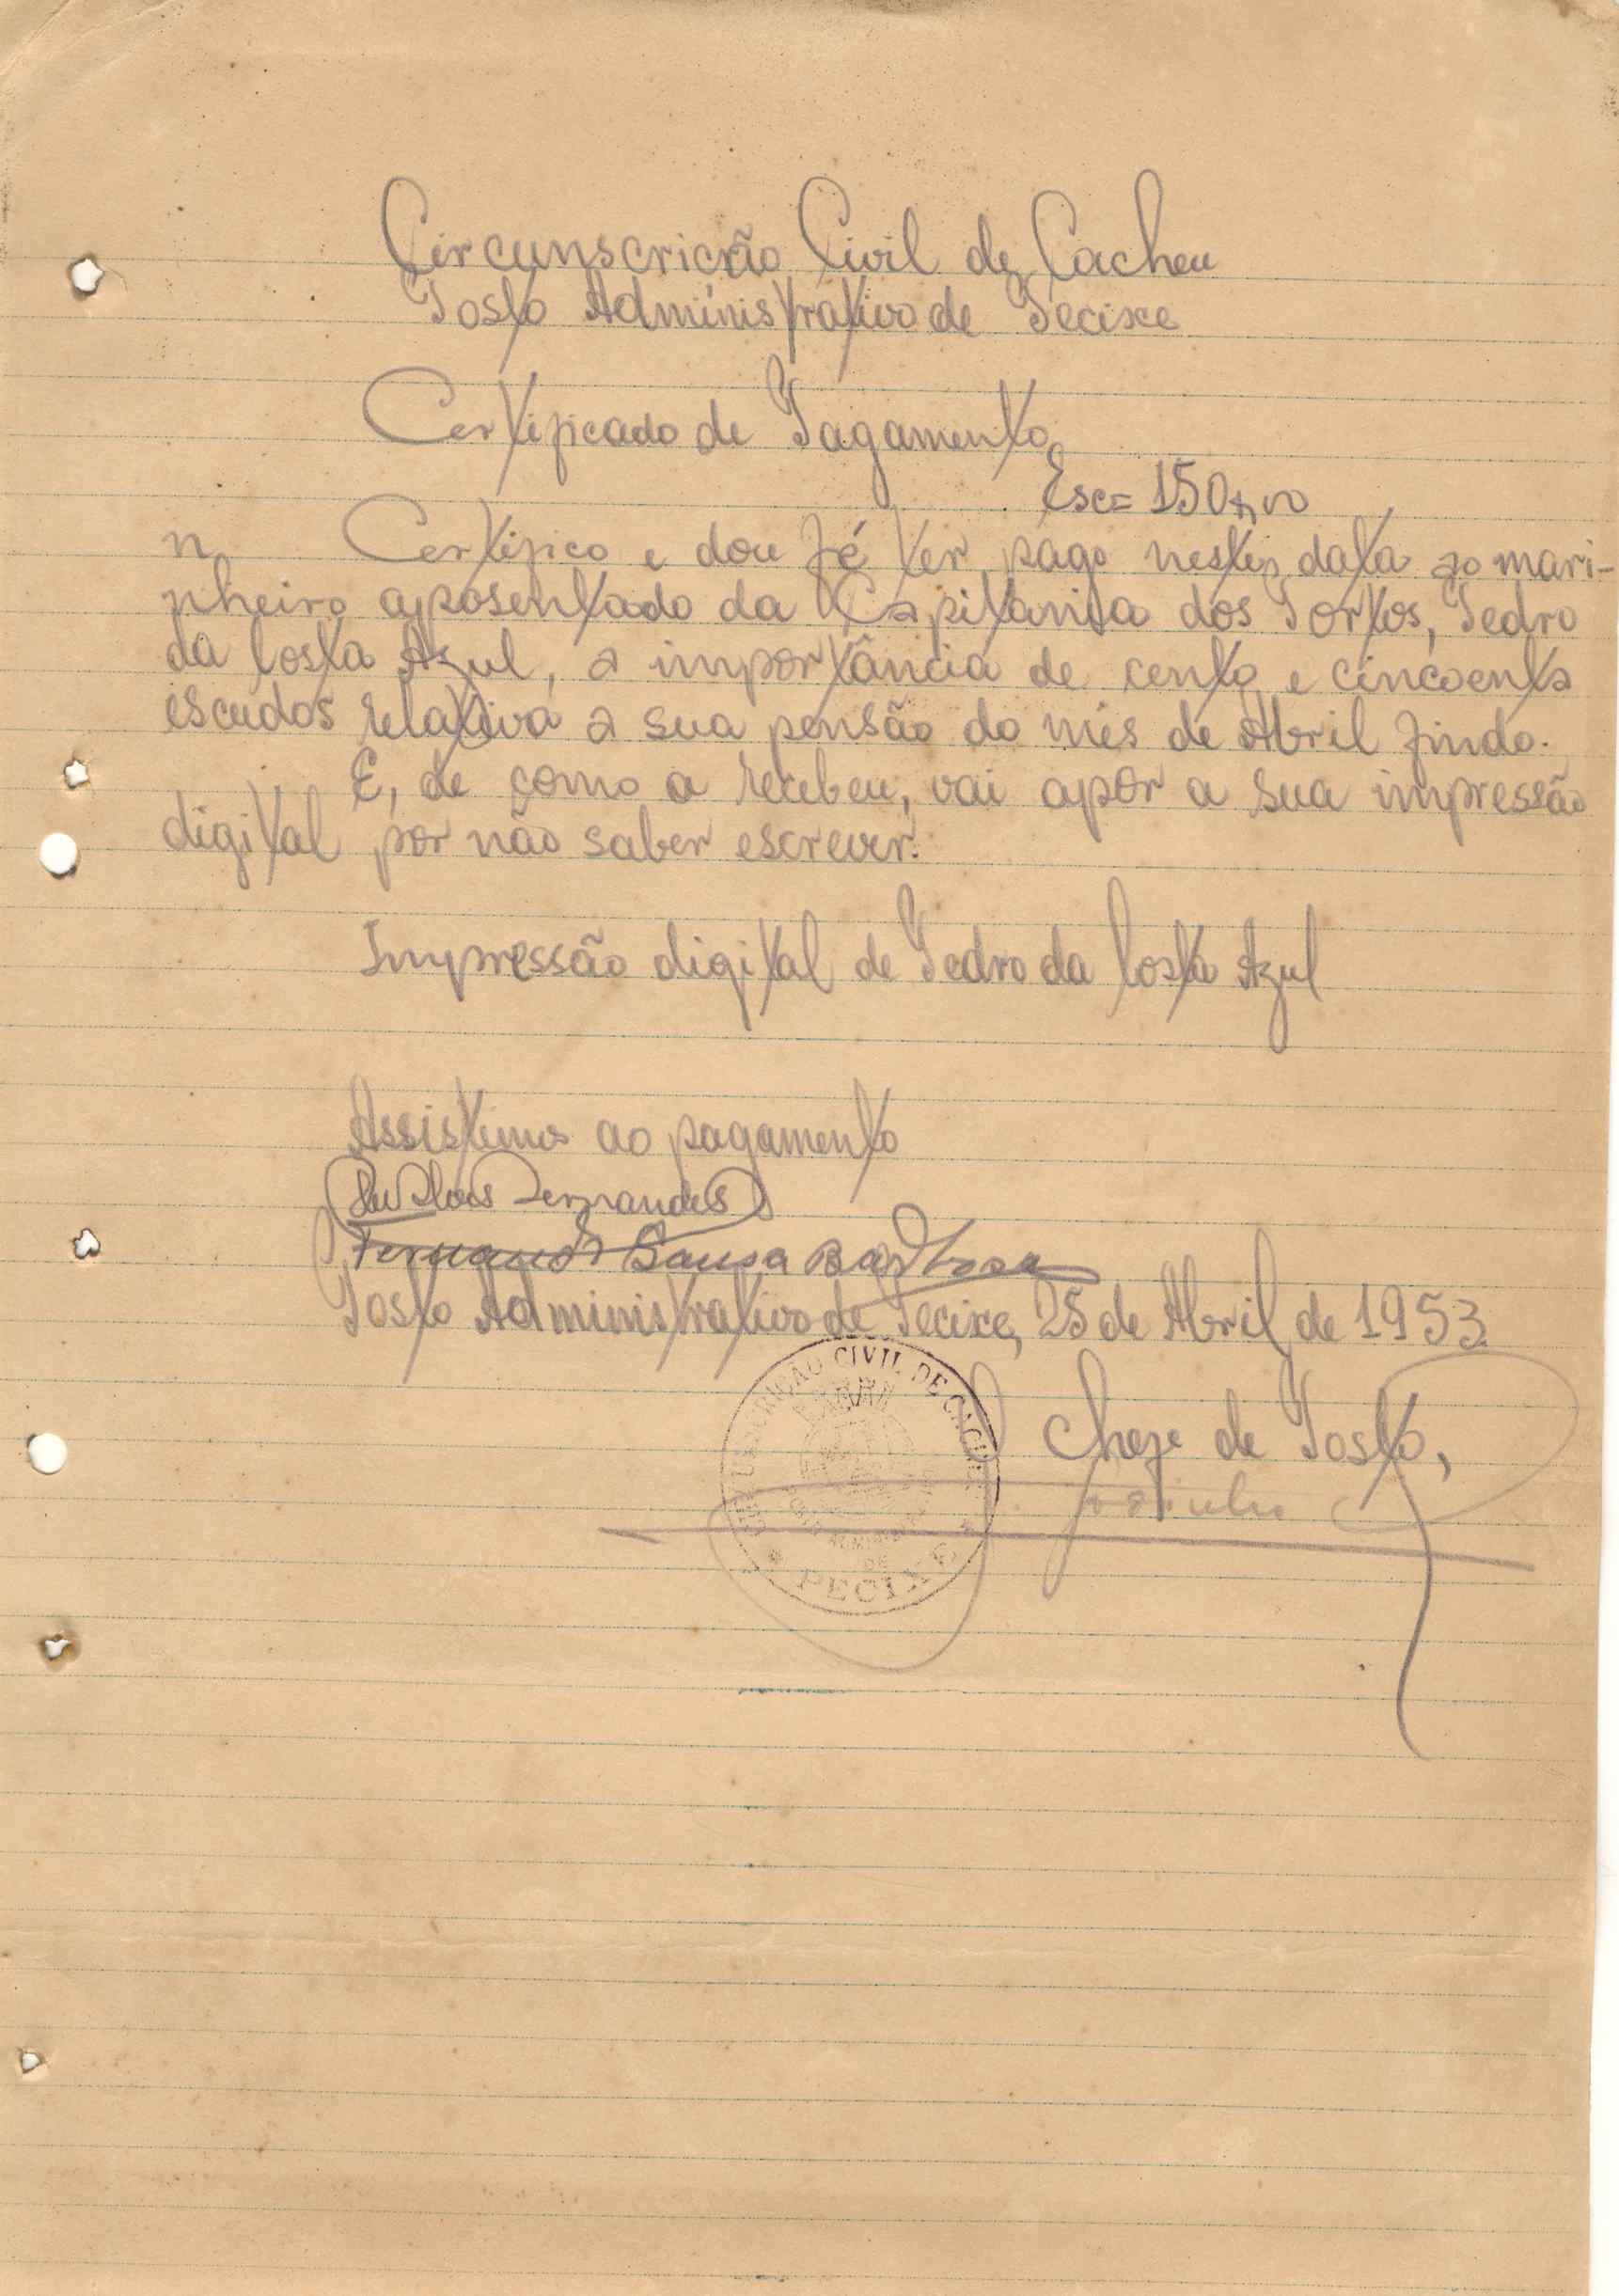 Circunscrição Civil de Cacheu
Posto Administrativo de Pecixe
Certificado de Pagamento
Esc= 150$00
n Certifico e dou fé ter pago nesta data ao mari-
nheiro aposentado da Capitania dos Portos, Pedro
da Costa Azul, a importância de cento e cincoenta
escudos relativa a sua pensão do mês de Abril findo.
E, de como a recebeu, vai apor a sua impressão
digital por não saber escrever.
Impressão digital de Pedro da Costa Azul
Assistimos ao pagamento
Fernandes
Fernando Sousa Barbosa
Posto Administrativo de Pecixe, 25 de Abril de 1953
CIRCUNSCRIÇÃO CIVIL DE CACHEU
O Chefe de Posto,
DE
PECIXE